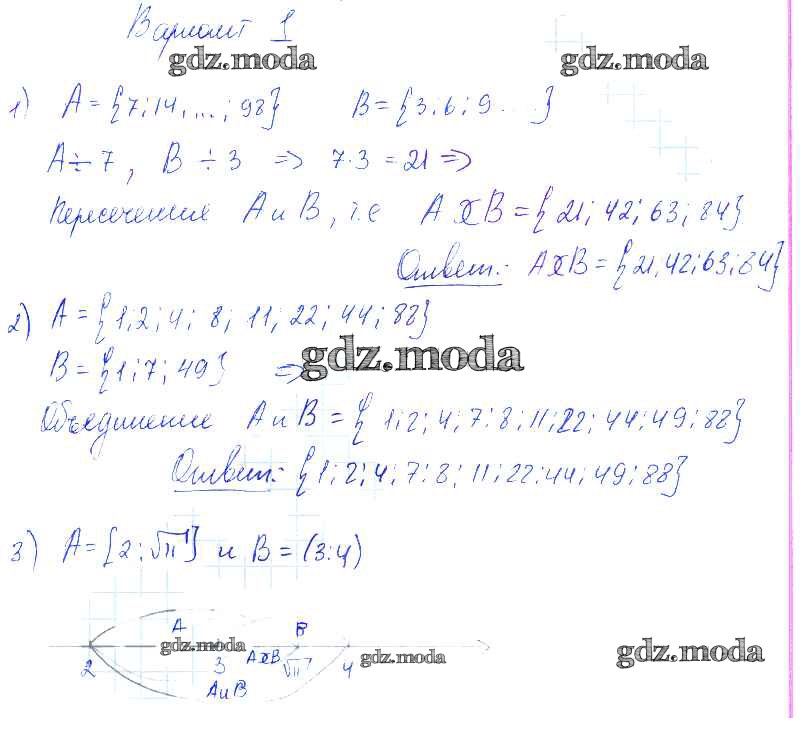 Вариант 1
gdz.moda gdz.moda
1) A = {7; 14, ...; 98} B = {3; 6; 9 ...}
A ÷ 7, B ÷ 3 => 7·3 = 21 =>
Пересечение A и B, т.е A ∩ B = {21; 42; 63; 84}
Ответ: A ∩ B = {21, 42; 63; 84}
2) A = {1; 2; 4; 8; 11; 22; 44; 88}
B = {1; 7; 49} =>
gdz.moda
Объединение A и B = {1; 2; 4; 7; 8; 11; 22; 44; 49; 88}
Ответ: {1; 2; 4; 7; 8; 11; 22; 44; 49; 88}
3) A = [2; √11] и B = (3; 4)
A B
gdz.moda
2 3 A∩B √11 4
gdz.moda gdz.moda
A и B